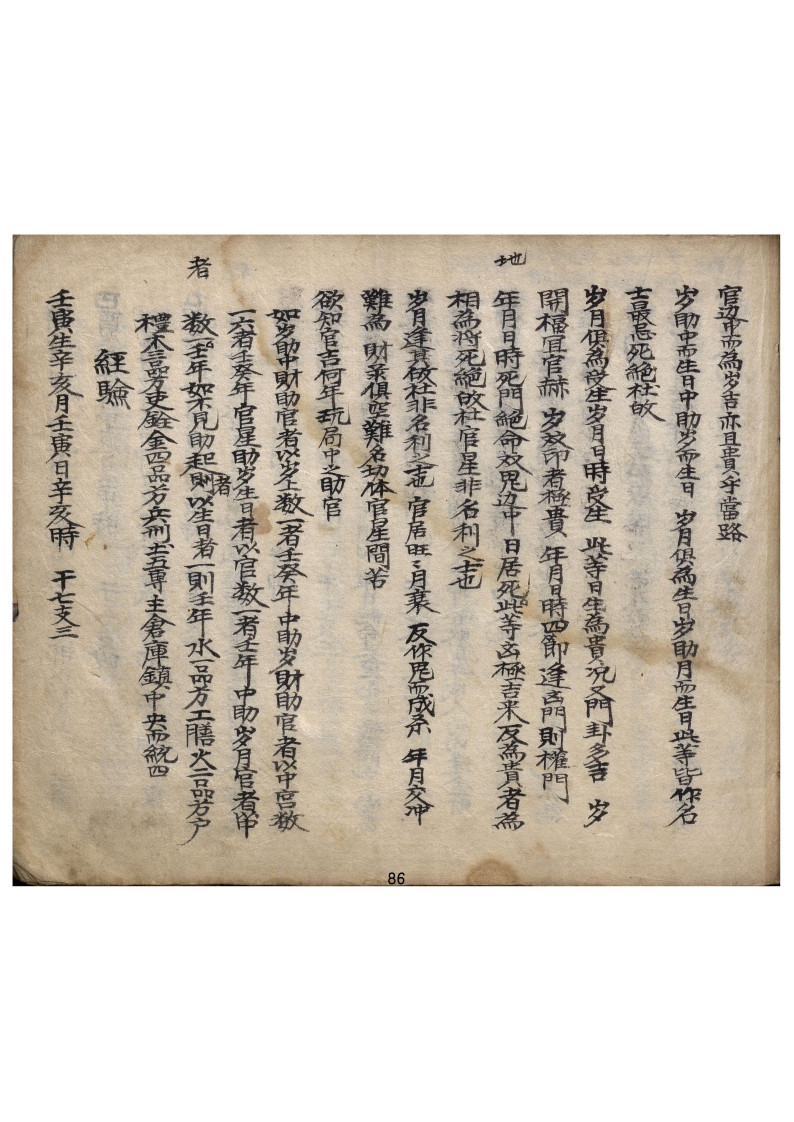 官边中而為岁吉亦且貴乎當路
岁助中而生日中助岁而生日 岁月俱為生日岁助月而生日此等皆作名
士最忌死絕杜故
岁月俱為受生岁月日時受生 此等日生為貴况又門卦多吉 岁
開福宜官赫 岁双印者極貴 年月日時四節逢凶門則權門
地
年月日時死門絕命双鬼边中 日居死此等凶極吉来反為貴者為
相為將死絕故杜官星非名利之士也
岁月逢其故杜非名利之士也 官居旺〻月衰 反作鬼而成杀 年月交冲
難為 財業俱空難名功体官星間苦
欲知官吉何年玩局中之助官
如岁助中財助官者以岁上数一者壬癸年中助岁財助官者以中宮数
一六者壬癸年官星助岁生日者以官数一者壬年中助岁月官者以中
者
数一壬年如不見助起者則以生日者一則壬年 水一品方工膳火二品方户
禮木三品方吏銓金四品方兵刑土五專主倉庫鎮中央而統四
經驗
壬寅生辛亥月壬寅日辛亥時 干七支三
86